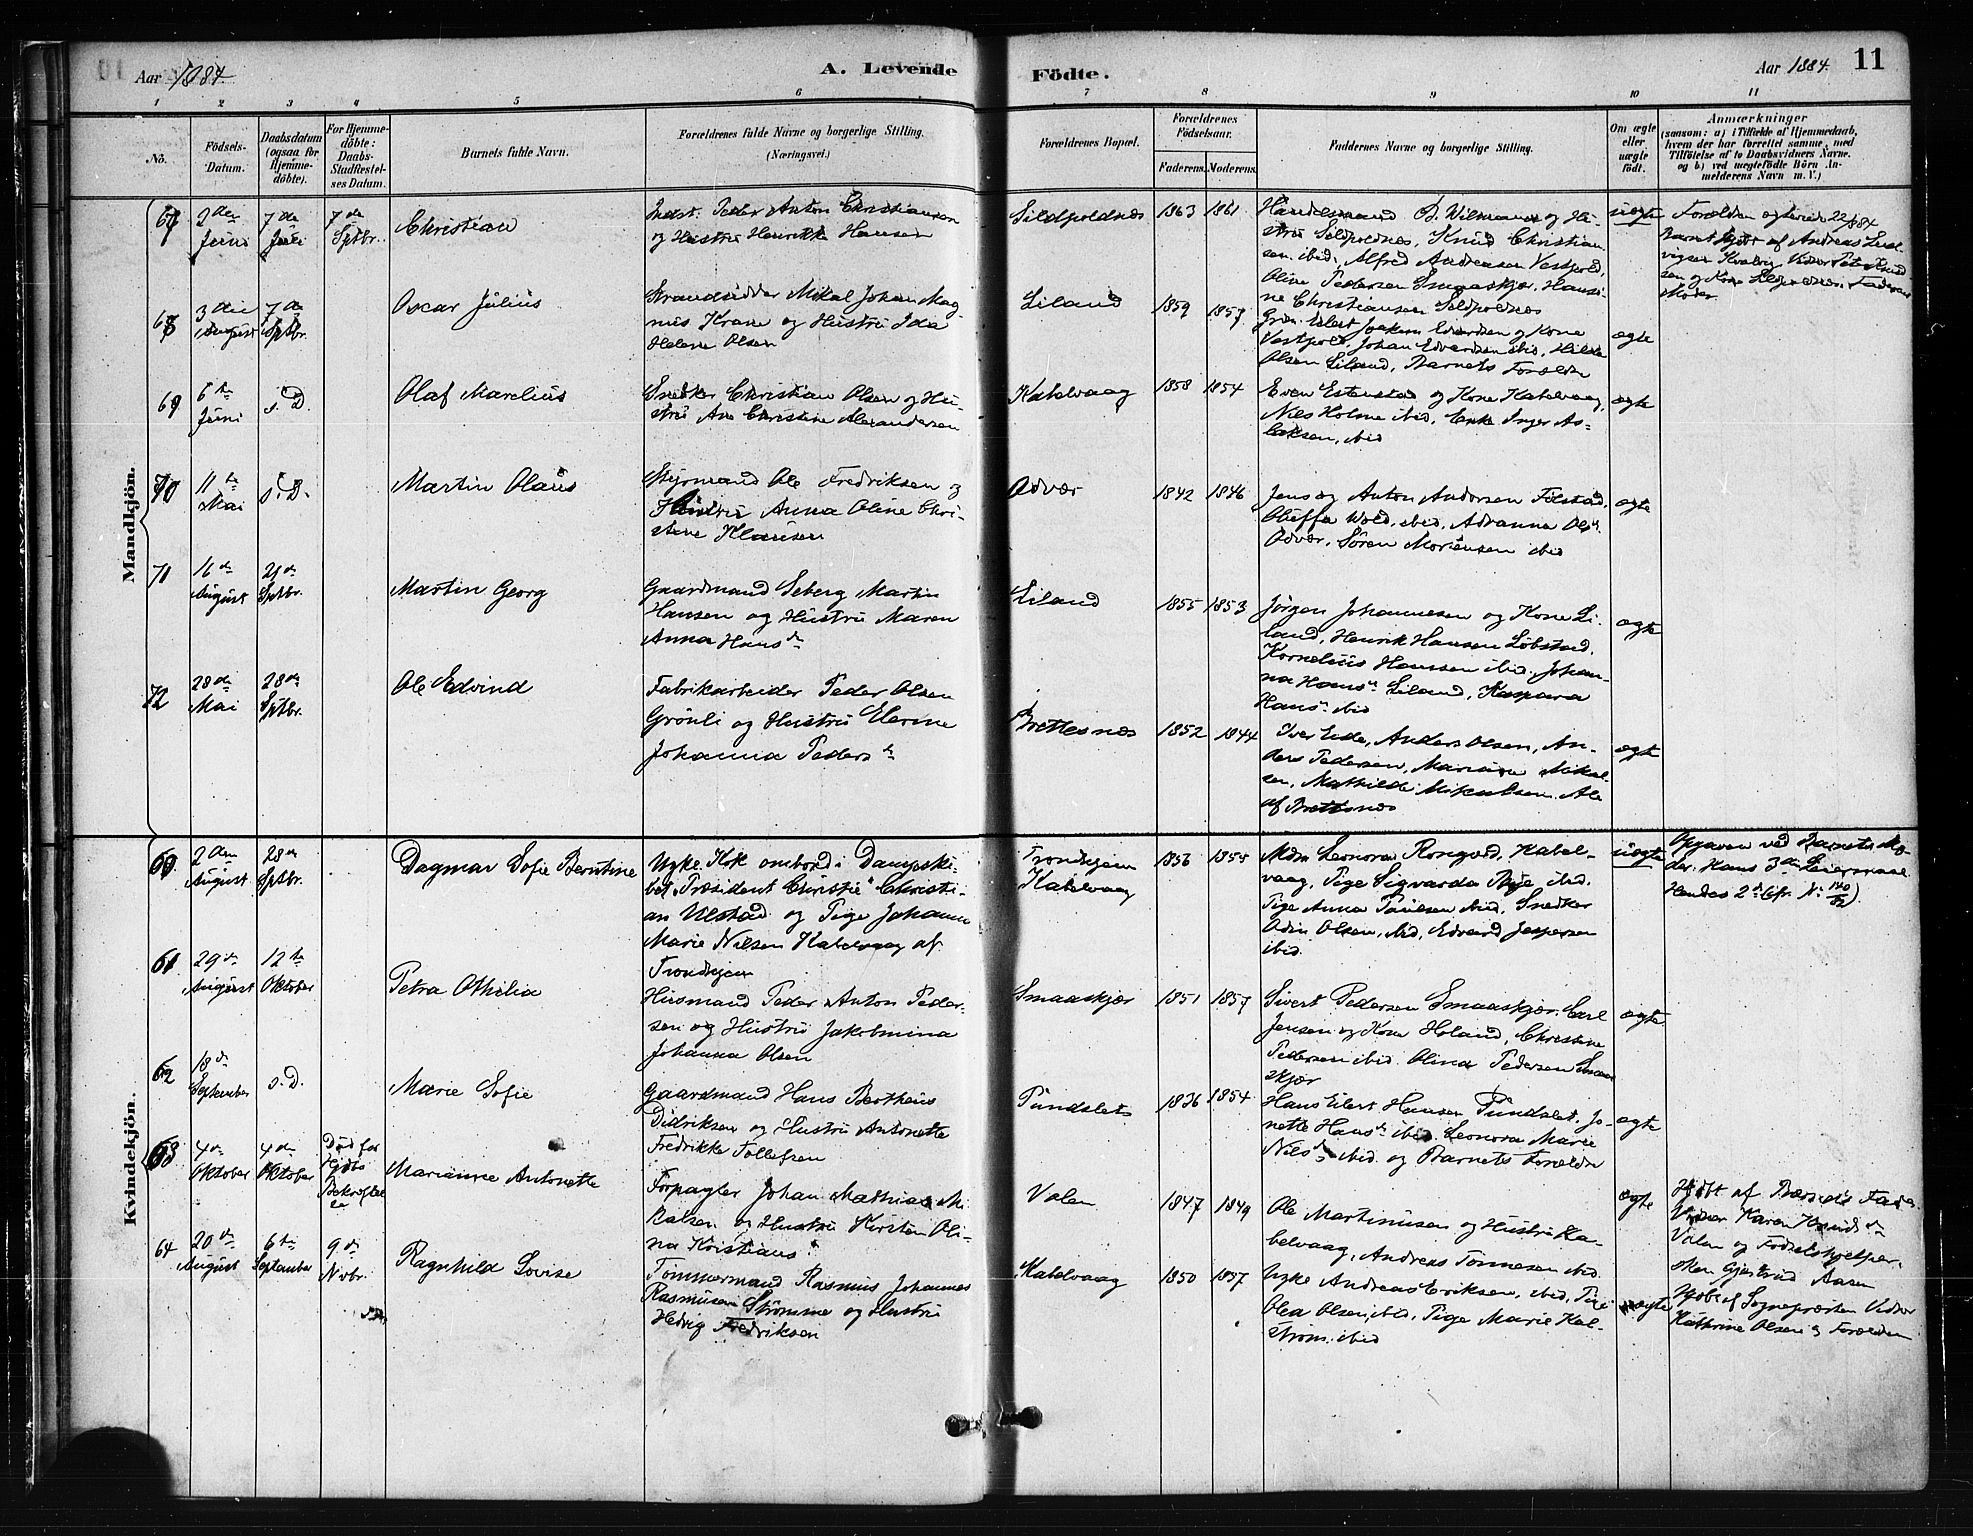 Aar 1884.
A. Levende
Födte.
Aar 1884.
11
1 2 3 4 5 6 7 8 9 10 11
No.
Födsels-
Datum.
Daabsdatum
(ogsaa for
Hjemme-
döbte).
For Hjemme-
döbte:
Daabs-
Stadfæstel-
ses Datum.
Barnets fulde Navn.
Forældrenes fulde Navne og borgerlige Stilling.
(Næringsvei.)
Forældrenes Bopæl.
Forældrenes
Födselsaar.
Faderens.
Moderens.
Faddernes Navne og borgerlige Stilling.
Om ægte
eller
uægte
födt.
Anmærkninger
(saasom: a) i Tilfælde af Hjemmedaab,
hvem der har forrettet samme, med
Tilföielse af to Daabsvidners Navne,
og b) ved uægtefödte Börn An-
melderens Navn m. V.)
Mandkjön.
67
2den
Juni
7de
Juli
7de
Sptbr.
Christian
Indst. Peder Anton Christiansen
og Hustru Henrikke Hansen
Sildpoldnæs
1863
1861
Handelsmand B. Wilmann og Hu-
stru Sildpoldnes, Knud Christian-
sen ibid, Alfred Andreasen Vestpold,
Oline Pedersen Smaaskjær, Hansi-
ne Christiansen Sildpoldnes
uægte
68
3die
August
7de
Sptbr.
Oscar Julius
Strandsidder Mikal Johan Mag-
nus Krane og Hustru Ida
Helene Olsen
Liland
1859
1857
Grdm. Eilert Joakim Edvardsen og Kone
Vestpold, Johan Edvardsen ibid, Hilda
Olsen Liland, Barnets Forældre
ægte
69
6te
Juni
s. D.
Olaf Marelius
Snedker Christian Olsen og Hu-
stru Ane Christine Alexandersen
Kabelvaag
1858
1854
Even Estenstad og Kone Kabelvaag,
Nils Holme ibid, Enke Inger As-
laksen, ibid
ægte
70
11te
Mai
s. D.
Martin Olaus
Styrmand Ole Fredriksen og
Hustru Anna Oline Chri-
stine Klausen
Odvær
1842
1846
Jens og Anton Andersen Fölstad,
Oluffa Wold, ibid, Adranna Ols.
Odvær, Sören Mortensen ibid
ægte
71
16de
August
21de
Sptbr.
Martin Georg
Gaardmand Seberg Martin
Hansen og Hustru Maren
Anna Hansdr
Liland
1855
1853
Jørgen Johannesen og Kone Li-
land, Henrik Hansen Löbstad,
Kornelius Hansen ibid, Johan-
na Hansdr Liland, Kaspara
Hansdr ibid
ægte
72
28de
Mai
28de
Sptbr.
Ole Edvind
Fabrikarbeider Peder Olsen
Grönli og Hustru Elerine
Johanna Pedersdr
Brettesnæs
1852
1844
Iver Eide, Anders Olsen, An-
ders Pedersen, Mariane Mikal-
sen, Mathilde Mikalsen. Alle
af Brettesnæs
ægte
Kvindekjön.
60
2den
August
28de
Sptbr.
Dagmar Sofie Berntine
Ugke. Kok ombord i Dampski-
bet "Præsident Christie" Christi-
an Ulstad og Pige Johanna
Marie Nilsen Kabelvaag af
Trondhjem
Trondhjem
Kabelvaag
1856
1855
Mdm Leonora Rongved, Kabel-
vaag, Pige Sigvarda Bye, ibid.
Pige Anna Paulsen ibid, Snedker
Odin Olsen, ibid, Edvard Jespersen
ibid.
uægte
Opgaven ved Barnets Mo-
der. Hans 3die Leiermaal
Hendes 2det
61
29de
August
12te
Oktober
Petra Othilia
Husmand Peder Anton Peder-
sen og Hustru Jakobmina
Johanna Olsen
Smaaskjær
1851
1857
Sivert Pedersen Smaaskjær, Carl
Jensen og Kone Holand, Christine
Pedersen ibid. Olina Pedersen Smaa
skjær
ægte
62
18de
September
s. D.
Marie Sofie
Gaardmand Hans Bertheus
Didriksen og Hustru Antonette
Fredrikke Tollefsen
Pundslet
1836
1854
Hans Eilert Hansen Pundslet, Jo-
nette Hansdr ibid. Leonora Marie
Nilsdr ibid. og Barnets Forældre
ægte
63
4de
Oktober
4de
Oktober
Död for
Hjdbs
Bekræftel
se
Marianne Antonette
Forpagter Johan Mathias Mi-
kalsen og Hustru Kirsten Oli-
na Kristians.
Volen
1847
1849
Ole Martinusen og Hustru Ka-
belvaag, Andreas Tønnesen ibid
ægte
Hjdbt af Barnets Fader.
Vidner Karen
Volen og Fødselshjelper-
sken Gjertrud Aasen
64
20de
August
6te
September
9de
Nvbr.
Ragnhild Lovise
Tømmermand Rasmus Johannes
Rasmusen Strømme og Hustru
Hedvig Fredriksen
Kabelvaag
1850
1857
Ugke Andreas Eriksen, ibid, Pige
Olea Olsen, ibid, Pige Marie Kal-
strøm. ibid
ægte
Hjdöbt af Sognepresten Vidner
Kathrine Olsen og Forælder